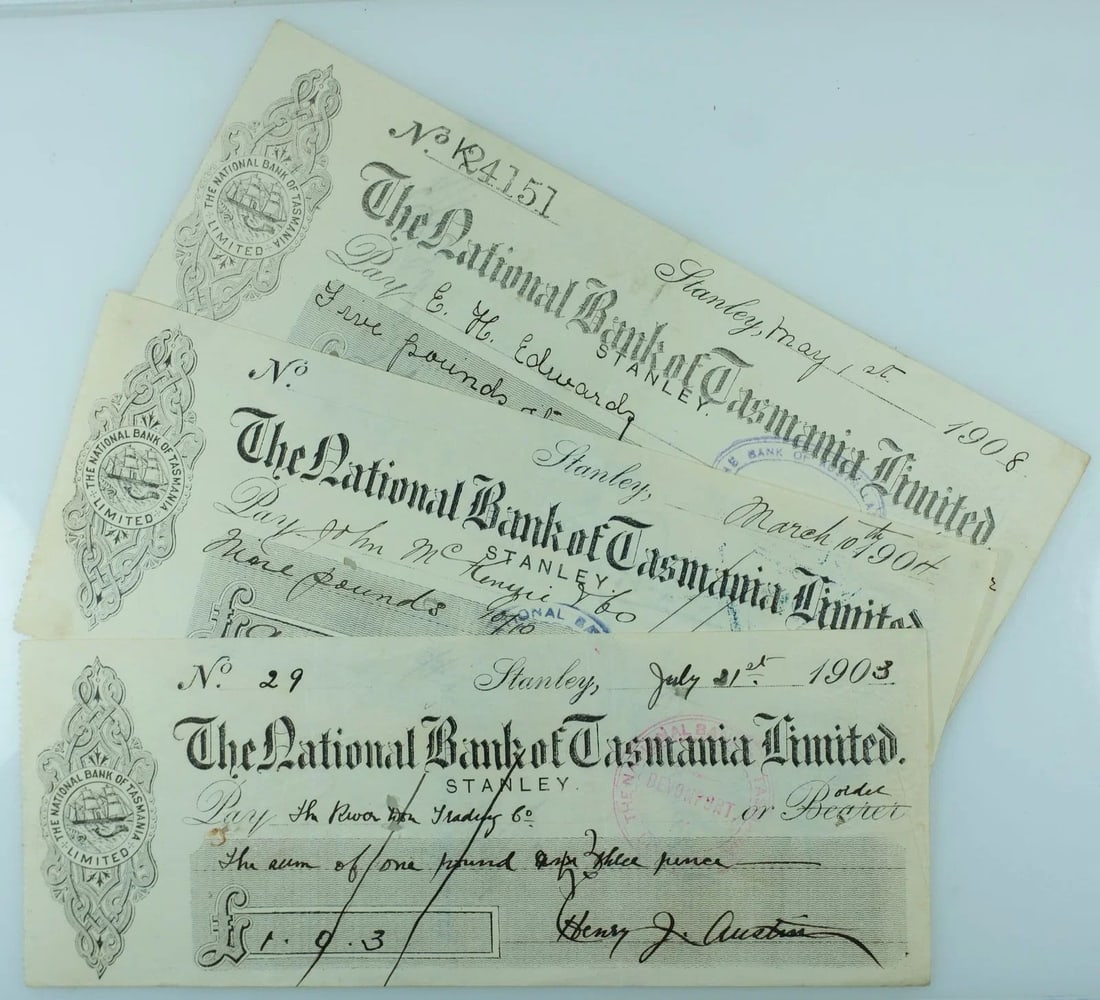 No. K24151
Stanley, May 1st. 1908
The National Bank of Tasmania Limited.
STANLEY.
Pay E. H. Edwards
Five pounds
THE NATIONAL BANK OF TASMANIA LIMITED
BANK OF
No.
Stanley, March 10th 1904
The National Bank of Tasmania Limited
STANLEY.
Pay John McKenzie & Co
pounds
THE NATIONAL BANK OF TASMANIA LIMITED
No. 29 Stanley, July 21st. 1903
The National Bank of Tasmania Limited.
STANLEY.
Pay The River Don Trading Co or Bearer
order
The sum of one pound three pence
£ 1. 0. 3
Henry J. Austin
THE NATIONAL BANK OF TASMANIA LIMITED
DEVONPORT